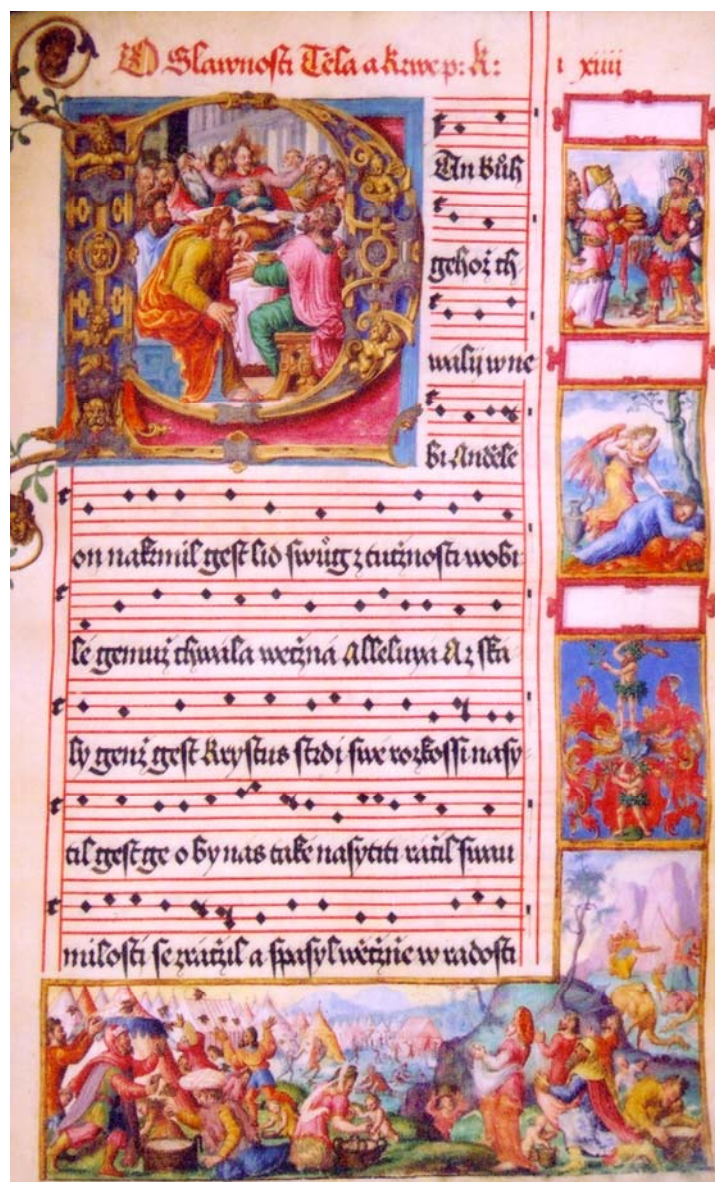 O Slawnosti Těla a krwe p: k:
i xiiii
An bůh
gehož ch
wálij w ne
bi Anděle
on nakrmil gest lid swůg z tučnosti w obi
lé gemuž chwála wěčzná Alleluya Az ska
ly genž gest Krystus strdi swe rozkossi nasy
til gest ge o by nas také nasytiti ráčil swau
milosti se zwáčzil a spasyl wěčzně w radosti